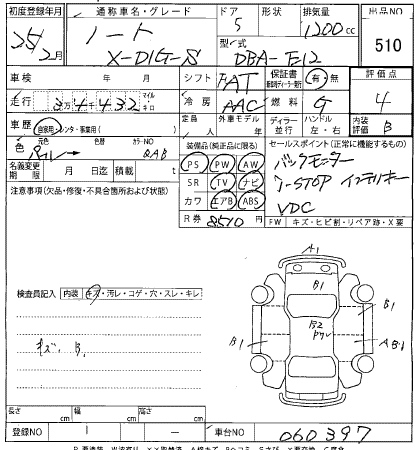 初度登録年月 通称車名・グレード ドア 形状 排気量 出品NO
25/2月 ノート 5 1200cc 510
X-DIG-S 型式 DBA-E12
車検 年 月 シフト FAT 保証書 有 無 評価点
走行 3万4千432 マイル キロ 冷房 AAC 燃料 G 4
車歴 自家用 レンタ・事業用( ) 定員 人 外車モデル 年 ディーラー 並行 ハンドル 左・右 内装評価 B
色 元色 パール 色替 カラーNO QAB
装備品(純正品に限る) セールスポイント(正常に機能するもの)
名義変更期限 月 日迄 積載 t
PS PW AW バックモニター
SR TV ナビ I-STOP インテリキー
カワ エアB ABS VDC
R券 8510円 FW キズ・ヒビ割・リペア跡・X要交換
注意事項(欠品・修復・不具合箇所および状態)
検査員記入 内装 キズ・汚レ・コゲ・穴・スレ・キレ
キズ. B.
A1
B1
B1
B2
B1
長さ cm 幅 cm 高さ cm
登録NO 1 — 車台NO 060397